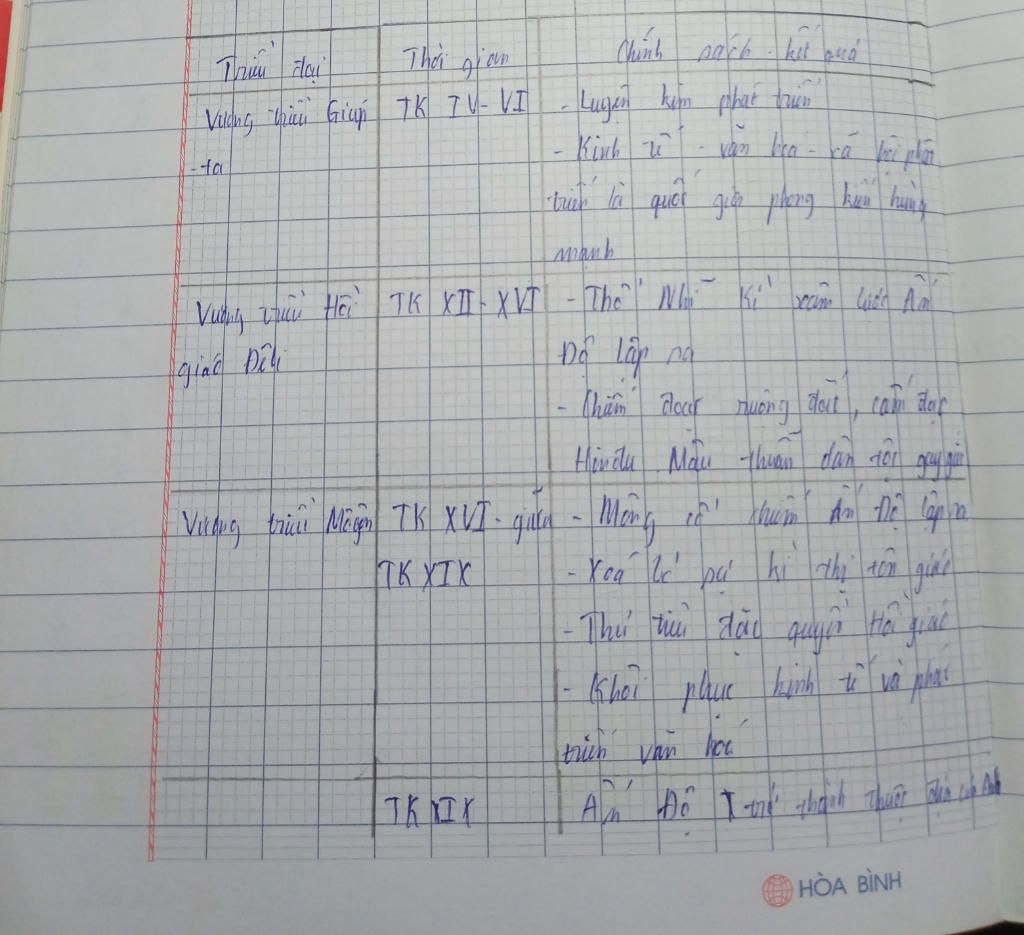 Triều đại Thời gian Chính sách - kết quả
Vương triều Giúp TK IV - VI - Luyện kim phát triển
-ta - Kinh tế - văn hóa - xã hội phát
triển là quốc gia phong kiến hùng
mạnh
Vương triều Hồi TK XII - XVI - Thổ Nhĩ Kì xâm lược Ấn
giáo Đêli Độ lập ra
- Chiếm đoạt ruộng đất, cấm đạo
Hinđu. Mâu thuẫn dân tộc gay gắt
Vương triều Môgôn TK XVI - giữa - Mông cổ chiếm Ấn Độ lập ra
TK XIX - Xoá bỏ sự kì thị tôn giáo
- Thủ tiêu đặc quyền Hồi giáo
- Khôi phục kinh tế và phát
triển văn hóa
TK XIX Ấn Độ trở thành thuộc địa của Anh
HÒA BÌNH